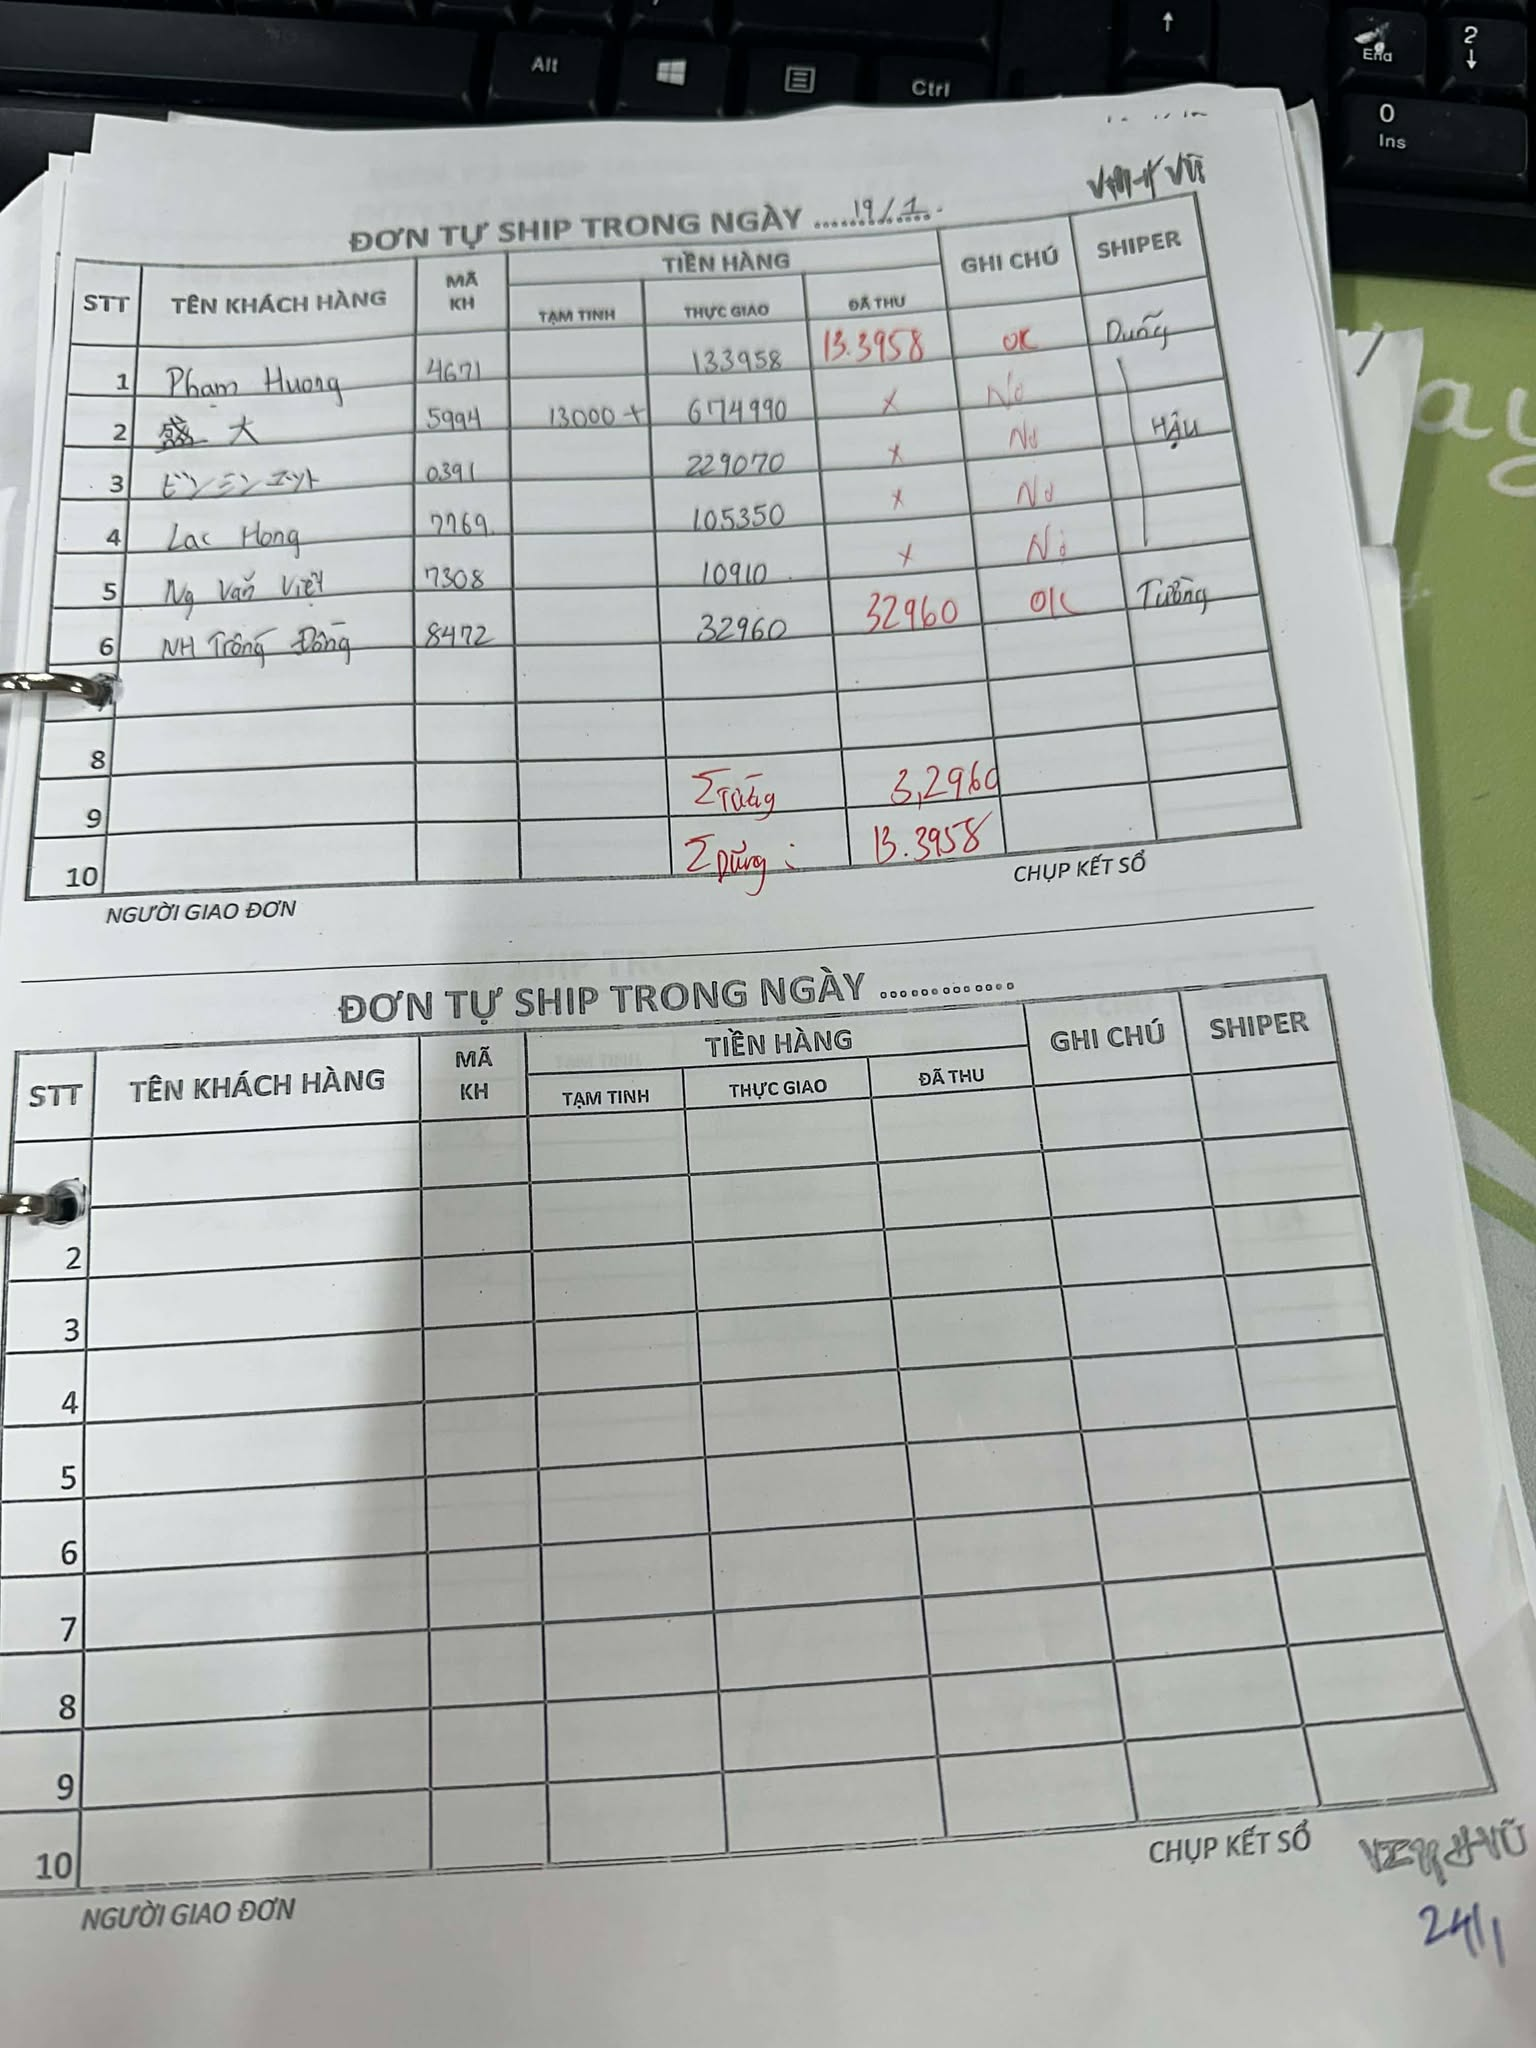 Alt
Ctrl
End
2
0
Ins
ĐƠN TỰ SHIP TRONG NGÀY ....19/1....
STT TÊN KHÁCH HÀNG MÃ KH TIỀN HÀNG GHI CHÚ SHIPER
TẠM TINH THỰC GIAO ĐÃ THU
1 Phạm Huong 4671 133958 13.3958 OK Dũng
2 盛大 5994 13000 + 674990 x Nợ
3 ビンミンエット 0391 229070 x Nợ HẬU
4 Lac Hong 7769 105350 x Nợ
5 Ng Văn Việt 7308 10910 x Nợ
6 NH Trống Đồng 8472 32960 32960 OK Tường
8
9 Σ 3,2960
10 Σ Dũng : 13.3958
NGƯỜI GIAO ĐƠN CHỤP KẾT SỔ
ĐƠN TỰ SHIP TRONG NGÀY .............
STT TÊN KHÁCH HÀNG MÃ KH TIỀN HÀNG GHI CHÚ SHIPER
TẠM TINH THỰC GIAO ĐÃ THU
2
3
4
5
6
7
8
9
10
NGƯỜI GIAO ĐƠN CHỤP KẾT SỔ
24/1